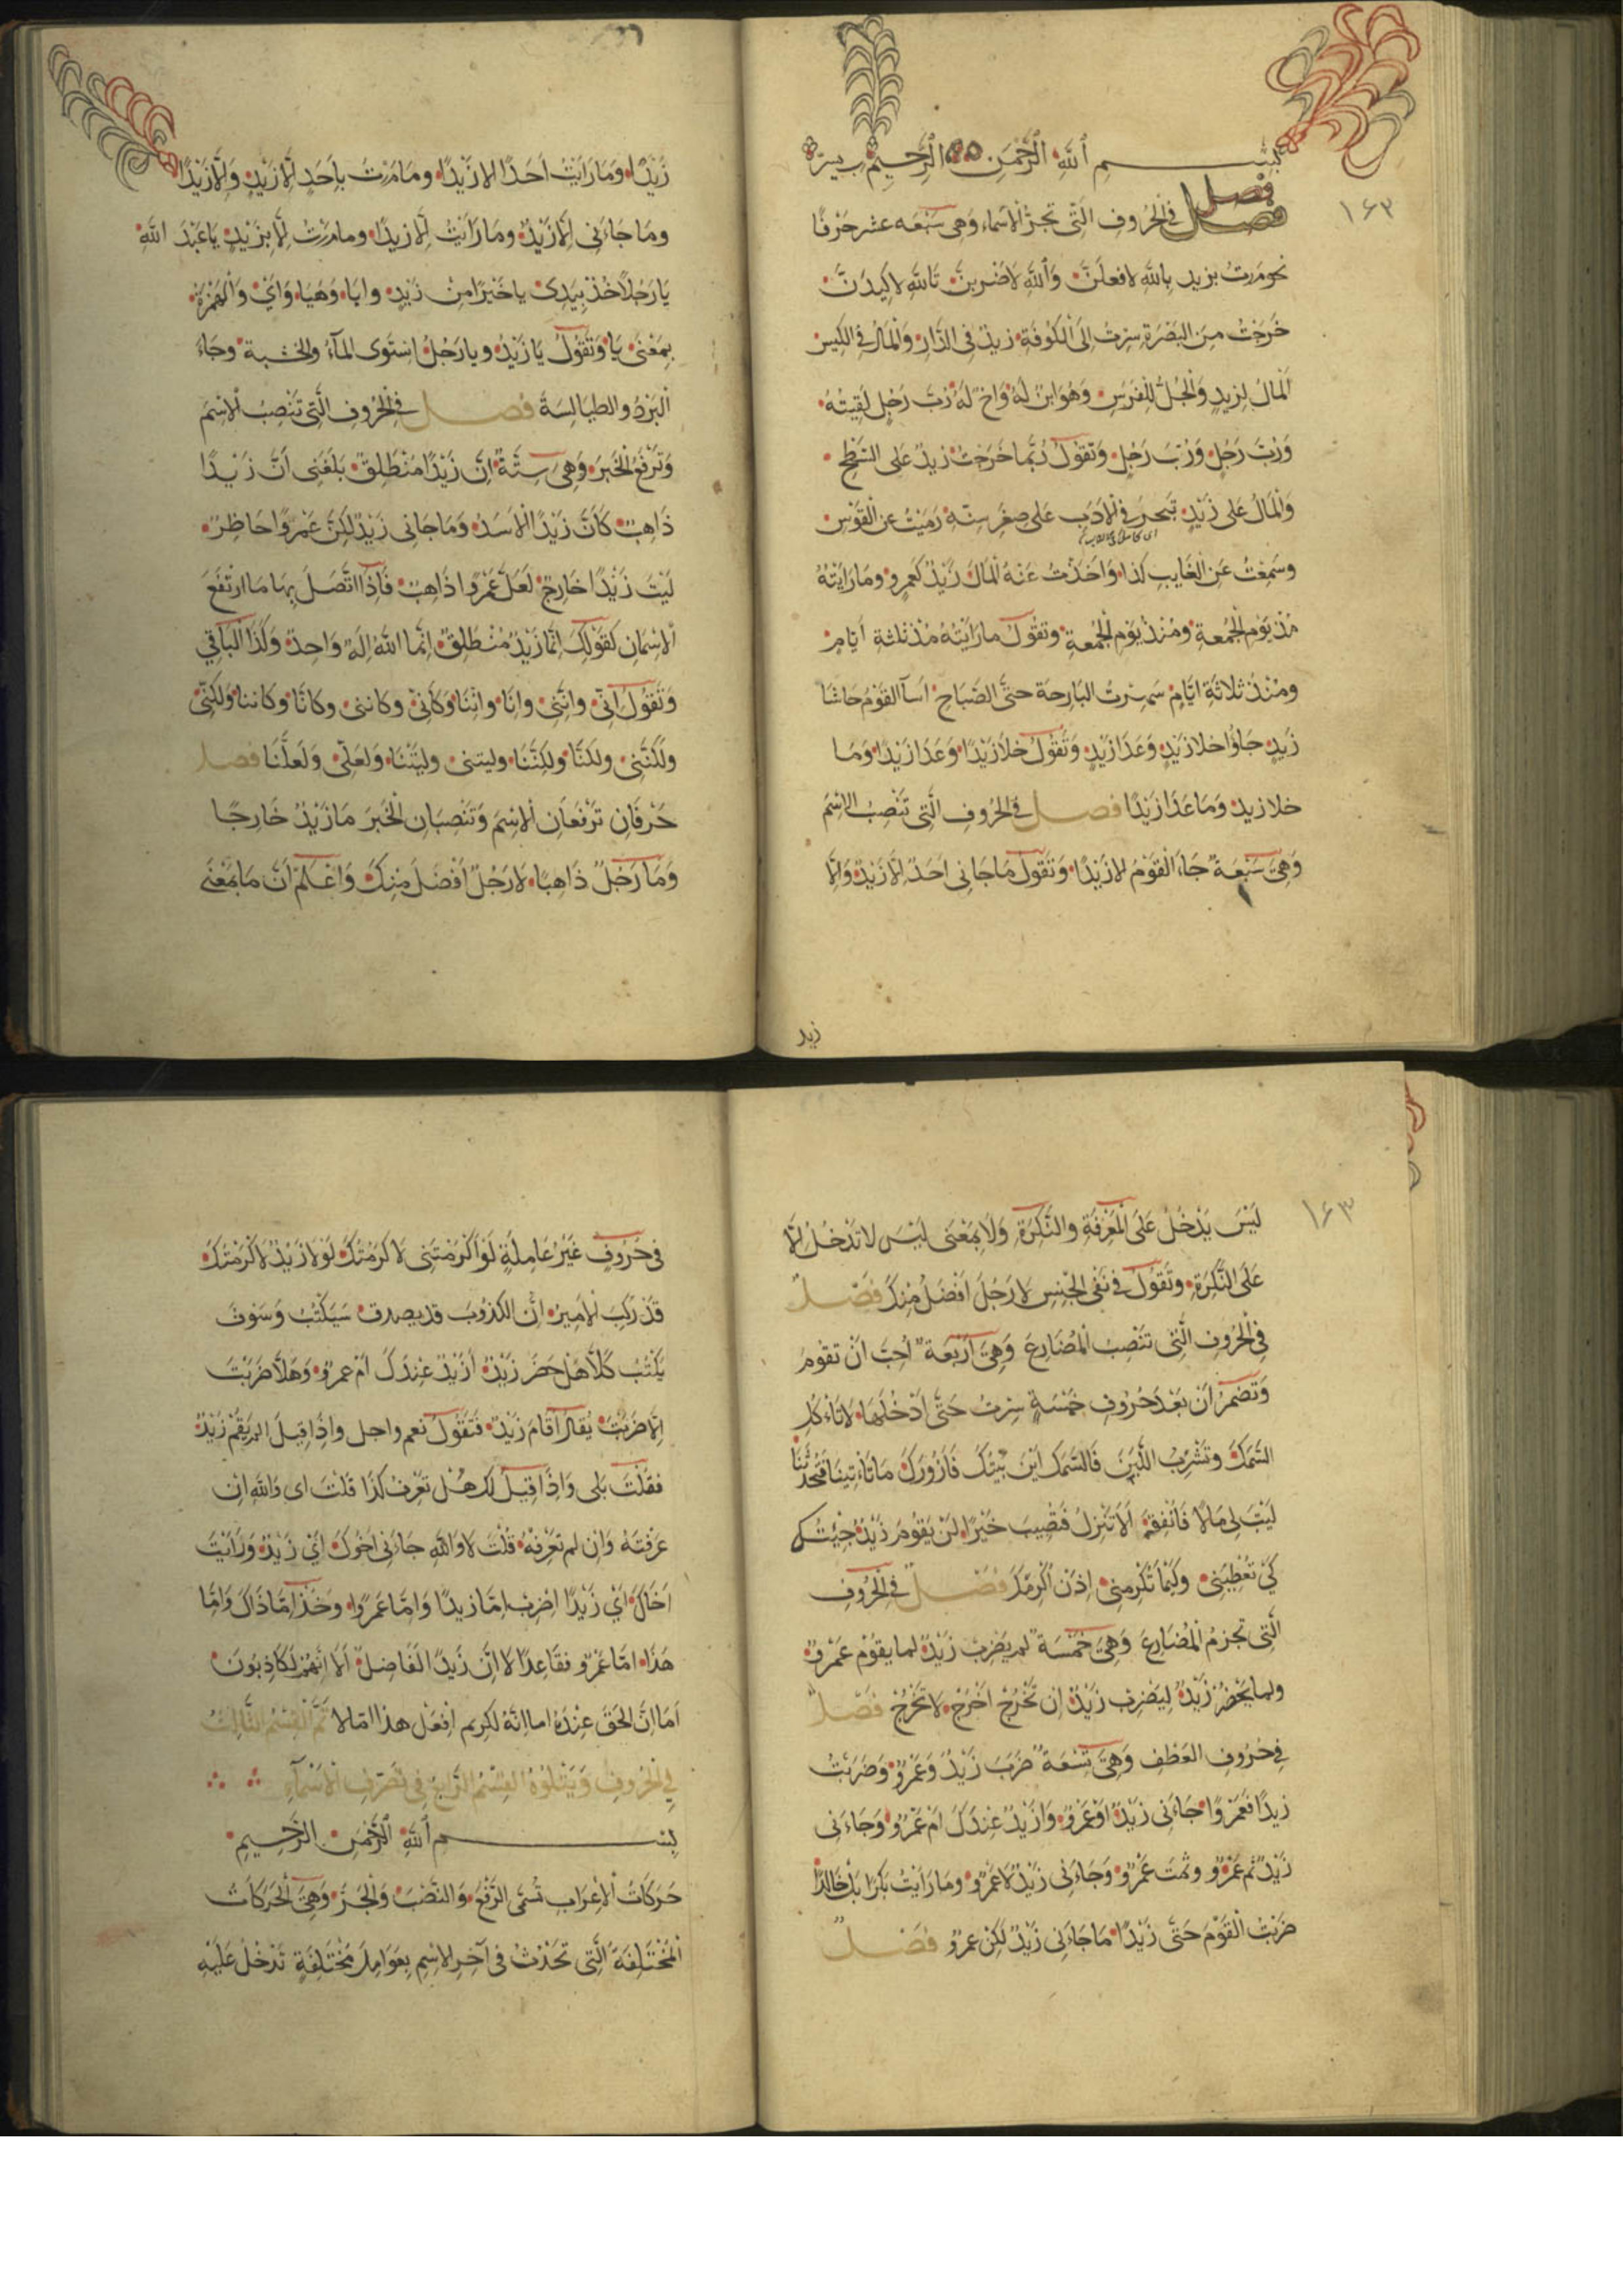 بِسْمِ ٱللهِ ٱلرَّحْمٰنِ ٱلرَّحِيْمِ رب يسر
١٦٣
فصل في الحُرُوفِ الَّتي تجرُّ الاسْماءَ وَهى سَبْعَه عشر حَرْفًا
نحو مَرَرتُ بزيدٍ باللهِ لافعلَنَّ وَٱللهِ لاَضْرِبنَّ تَاللهِ لاَكِيدَنَّ
خَرَجْتُ مِنَ البَصْرَةِ سِرْتُ اِلَى الْكُوْفَةِ زيدٌ في الدَّارِ وَالْمَالُ في الكِيسِ
اَلْمالُ لِزيدٍ وَالْجُلُّ لِلْفَرَسِ وَهُوَ ابنٌ لَهُ وَاَخٌ لَهُ رُبَّ رَجُلٍ لَقِيتُهُ
وَرُبَتَ رَجُلٍ وَرُبَ رَجُلٍ وَتَقُوْلُ رُبَّمَا خَرَجْتُ زيدٌ عَلى السَّطْحِ
وَالْمَالُ عَلى زَيْدٍ تبحر في الاَدَبِ عَلى صِغَرِ سِنّهِ رَمَيْتُ عَنِ القَوْسِ
وسَمِعْتُ عَنِ الغَايِبِ كَذا وَاَخَذْتُ عَنْهُ الْمَالَ زَيْدٌ كَعَمرٍو ومَا رَاَيْتُهُ
مُذْ يَوْمِ الجُمُعَةِ ومُنْذُ يَوْمِ الجُمُعَةِ وتقُوْلُ ما رَاَيْتُهُ مُذْ ثلثةِ اَيَّامٍ
ومُنْذُ ثلاثَةِ ايَّامٍ سَهِرْتُ البَارِحَةَ حتَّى الصَّبَاحِ اَسَآ القَوْمُ حَاشَا
زَيدٍ جَاؤا خلا زَيْدٍ وَعَدَا زَيْدٍ وَتَقُوْلُ خلاَ زَيْدًا وَعَدَا زَيْدًا وَمَا
خلا زيدا وَمَا عَدَا زَيْدًا فصل في الحُرُوفِ الَّتي تَنْصِبُ الاِسْمَ
وَهِيَ سَبْعَةٌ جَاءَ الْقَوْمُ اِلا زَيْدًا وَتَقُوْلُ مَا جَانى اَحَدٌ اِلاَّ زَيْدٌ وَاِلاَّ
زيد
زَيْدًا وَمَا رَاَيْتُ اَحَدًا اِلا زَيْدًا وما مَرَرْتُ بِاَحَدٍ اِلَّا زَيْدٍ وَاِلَّا زَيْدًا
ومَا جَاءَنى اِلَّا زَيْدٌ ومَا رَاَيْتُ اِلَّا زيدًا وما مَرَرْتُ اِلَّا بِزَيْدٍ يا عَبْدَ اللهِ
يَا رَجُلاً خُذْ بِيَدِى يا خَيْرًا مِنْ زَيْدٍ وايَا وَهَيَا وَاَيْ وَالْهَمْزَةُ
بِمَعْنَى يَا وَتَقُوْلُ يَا زَيْدُ ويا رَجُلُ اِسْتَوَى المآءُ والخشبةَ وجَاءَ
الْبَرْدُ والطيالِسَةَ فصل في الحُرُوفِ الَّتي تَنْصِبُ الاِسْمَ
وَتَرْفَعُ الْخَبَرَ وَهِىَ سِتَّةٌ اِنَّ زَيْدًا مُنْطَلِقٌ بَلَغَنى اَنَّ زَيْدًا
ذَاهِبٌ كَاَنَّ زَيْدًا الاَسَدُ وَمَا جَانى زَيْدٌ لكِنَّ عَمْرَوًا حَاظِرٌ
لَيْتَ زَيْدًا خَارِجٌ لَعَلَّ عَمْرًوا ذَاهِبٌ فَاِذَا اتَّصَلَ بِهَا مَا ارْتَفَعَ
الاِسْمَانِ كَقَوْلِكَ اِنَّمَا زَيْدٌ مُنْطَلِقٌ اِنَّمَا اللهُ اِلهٌ وَاحِدٌ وَكَذَا الْبَاقِي
وَتَقُوْلُ اِنّى وانَّنى وانَّا واِنَّنَا وَكَاَنّى وكاننى وكانَّا وكاننا ولكنّى
ولكنَّنى ولكنَّا ولكِنَّنَا وليتنى وليْتَنَا ولعَلّى وَلَعَلَّنَا فصل
حَرْفَانِ تَرْفَعَانِ الاِسْمَ وَتَنْصِبَانِ الْخَبَرَ مَا زَيْدٌ خَارِجًا
وَمَا رَجُلٌ ذَاهِبًا لا رَجُلٌ اَفْضَلَ مِنْكَ وَاعْلَمْ اَنَّ مَا بِمَعْنَى
١٦٣
لَيْسَ يَدْخُلُ عَلَى الْمَعْرِفَةِ والنَّكِرَةِ وَلا بِمَعْنَى لَيْسَ لا تَدْخُلُ اِلَّا
عَلَى النَّكِرَةِ وتَقُوْلُ في نَفْيِ الجِنْسِ لا رَجُلَ اَفْضَلُ مِنْكَ فصل
في الحُرُوفِ الَّتى تَنْصِبُ الْمُضَارِعَ وَهِيَ اَرْبَعَةٌ اُحِبُّ اَنْ تقومَ
وَتُضْمَرُ اَنْ بَعْدَ حُرُوفٍ خَمْسَةٍ سِرْتُ حَتَّى اَدْخُلَهَا لا تَاءكُلِ
السَّمَكَ وتَشْرَبَ اللَّبَنَ اَيْنَ بَيْتُكَ فَاَزُورَكَ مَا تَاءْتِينَا فَتُحَدِّثَنَا
لَيْتَ لى مَالاً فَاُنْفِقَهُ اَلاَ تَنْزِلُ فَتُصِيبَ خَيْرًا لَنْ يَقُوْمَ زَيْدٌ جِئْتُكَ
كَيْ تُعْطِيَنى ولكَيْمَا تُكْرِمَنِى اِذَنْ اُكْرِمَكَ فصل في الحُرُوفِ
الَّتى تجزمُ الْمُضَارِعَ وَهِىَ خَمْسَةٌ لم يَضْرِبْ زَيْدٌ لما يَقُمْ عَمْروٌ
ولما يَحْضُرْ زَيْدٌ لِيَضْرِبْ زَيْدٌ اِنْ تَخْرُجْ اَخْرُجْ لا تَخْرُجْ فصل
في حُرُوفِ العَطْفِ وَهِيَ تِسْعَةٌ ضَرَبَ زَيْدٌ وَعَمْروٌ وَضَرَبْتُ
زيدًا فَعَمْرًوا جَاءَنى زَيْدٌ اَوْ عَمْروٌ وَاَزَيْدٌ عِنْدَكَ اَمْ عَمْروٌ وَجَاءَنى
زَيْدٌ ثُمَّ عَمْروٌ وثمتَ عَمْروٌ وَجَاءَنى زَيْدٌ لاَ عَمْروٌ ومَا رَاَيْتُ بَكْرًا بَلْ خَالِدًا
ضَرَبْتُ الْقَوْمَ حَتَّى زَيْدًا مَا جَاءَنى زَيْدٌ لكِنْ عمروٌ فصل
في حُرُوفٍ غَيْرِ عَامِلَةٍ لَوْ اَكْرَمْتَنِى لاَكْرَمْتُكَ لَوْلا زَيْدٌ لاَكْرَمْتُكَ
قَدْ رَكِبَ الاَمِيرُ اِنَّ الكَذُوبَ قد يصدق سَيَكْتُبُ وَسَوْفَ
يَكْتُبُ كَلاَّ هَلْ حَضَرَ زَيْدٌ اَزَيْدٌ عِنْدَكَ اَمْ عمروٌ وَهَلاَّ ضَرَبْتَ
اِلاَّ ضَرَبْتَ يُقَالُ اَقَامَ زَيْدٌ فَتَقُوْلُ نعم واجل واِذَا قِيلَ اَلم يَقُمْ زَيْدٌ
فقُلْتَ بَلى وَاِذَا قِيلَ لكَ هَلْ تَعْرِفُ كَذَا قُلْتَ اى وَاللهِ اِنْ
عَرَفْتَهُ وَاِنْ لم تَعْرِفْهُ قُلْتَ لا وَاللهِ جاءَنى اَخُوكَ اَيْ زَيْدٌ وَرَاَيْتُ
اَخَاكَ اَيْ زَيْدًا اِضْرِبْ اِمَّا زيدًا وَاِمَّا عَمْرًوا وَخُذْ اِمَّا ذَاكَ وَاِمَّا
هَذَا اَمَّا عَمْرٌو فقَاعِدٌ اَلا اِنَّ زَيدًا الفَاضِلُ اَلاَ اِنَّهُمْ لَكَاذِبُونَ
اَمَا اِنَّ الحَقَّ عِنْدَهُ اما اِنَّهُ لكَرِيم اِفعَلْ هذا اِمّالا تَمَّ الْقِسْمُ الثَّالِثُ
في الحُرُوفِ وَيَتْلُوْهُ القِسْمُ الرَّابِعُ في تَصْرِيفِ الاَسْمآءِ
بِسْمِ ٱللهِ ٱلرَّحْمٰنِ الرَّحِيْمِ
حَرَكَاتُ الاِعْرَابِ تُسَمَّى الرَّفْعَ وَالنَّصْبَ وَالْجَرَّ وَهِيَ الْحَرَكَاتُ
الْمُخْتَلِفَةُ الَّتى تَحْدُثُ في آخِرِ الاِسْمِ بِعَوَامِلَ مُخْتَلِفَةٍ تَدْخُلُ عَلَيْهِ